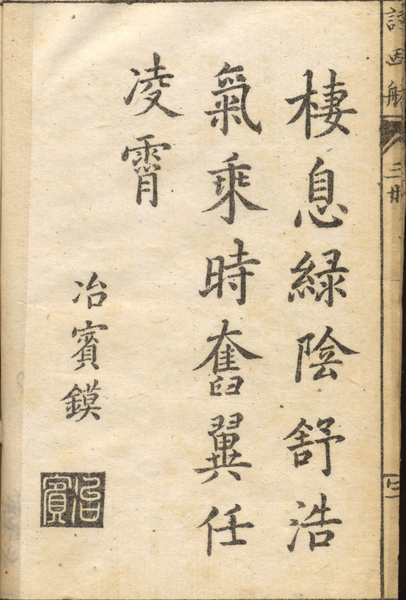 詩画舫
棲息綠陰舒浩
氣乘時奮翼任
凌霄
冶賓鏌
冶賓